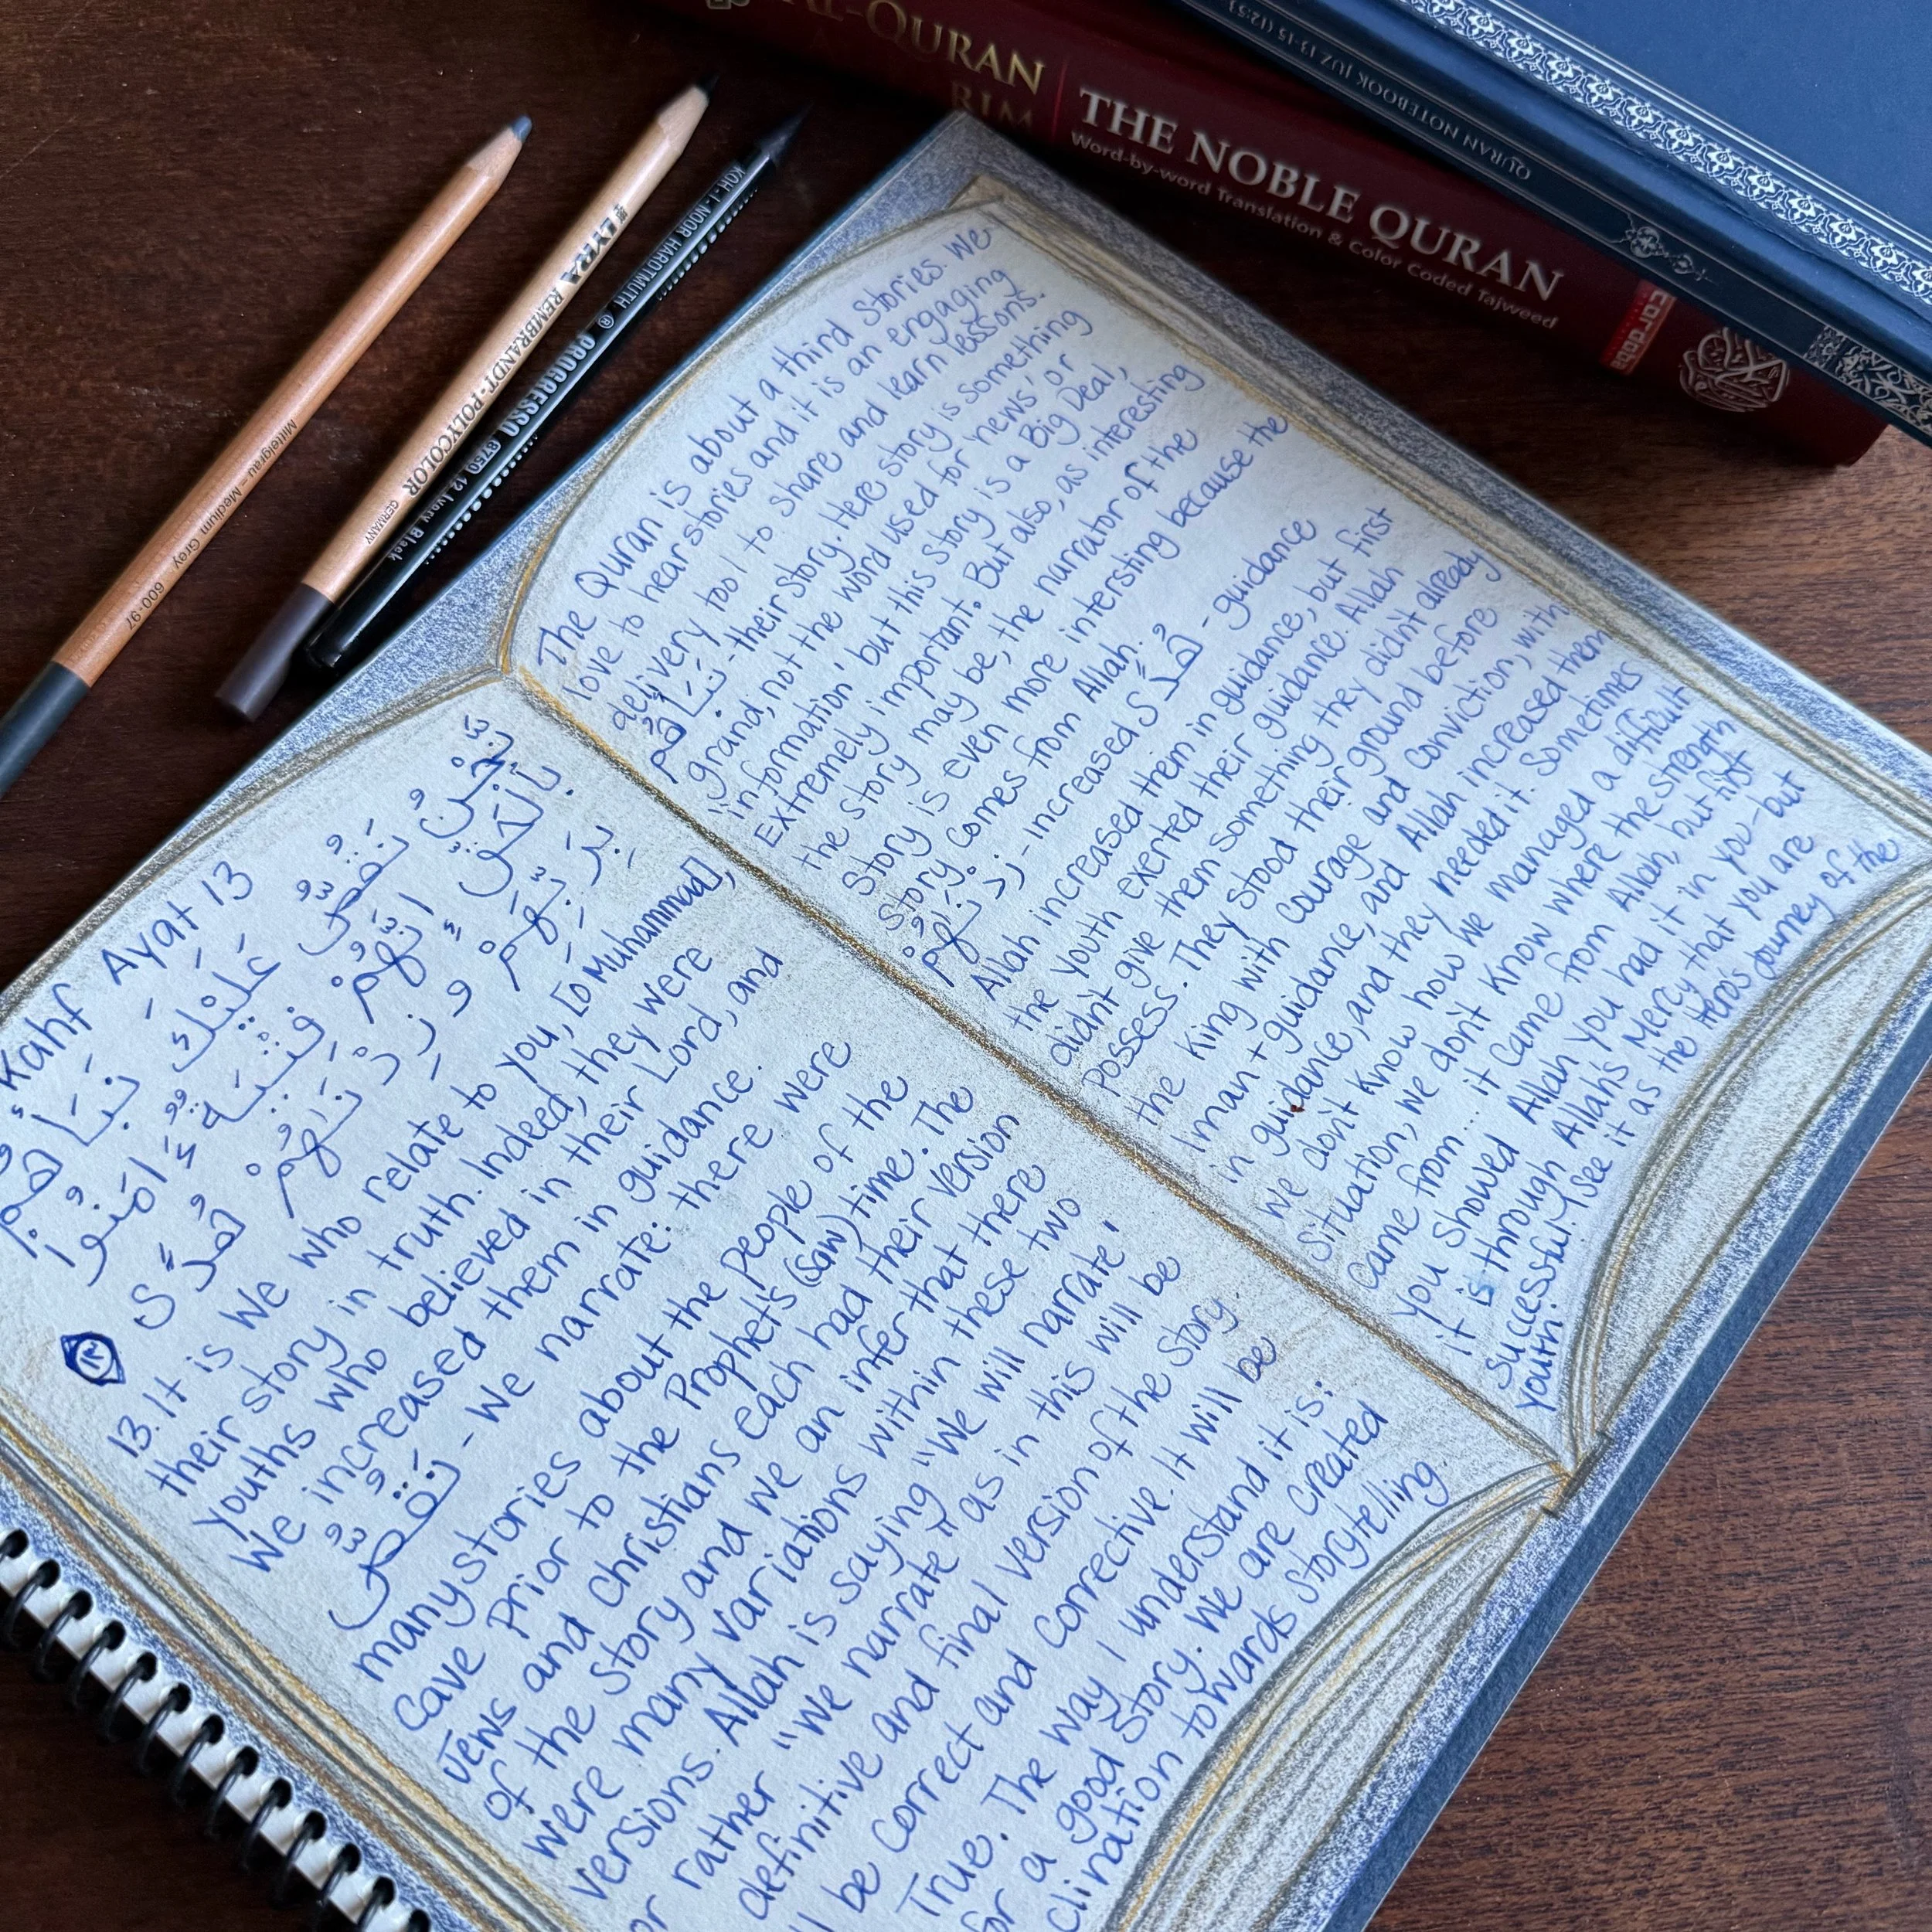 AL-QURAN
THE NOBLE QURAN
Word-by-word Translation & Color Coded Tajweed
QURAN NOTEBOOK JUZ 13-15 (12:5)
Mittelgrau - Medium Grey 600-97
LYRA REMBRANDT-POLYCOLOR GERMANY
KOH-I-NOOR HARDTMUTH ® PROGRESSO 8750 12 Ivory Black
Kahf Ayat 13
نَحْنُ نَقُصُّ عَلَيْكَ نَبَأَهُمْ
بِالْحَقِّ إِنَّهُمْ فِتْيَةٌ ءَامَنُوا
بِرَبِّهِمْ وَزِدْنَاهُمْ هُدًى
١٣
13. It is We who relate to you, [O Muhammad],
their story in truth. Indeed, they were
youths who believed in their Lord, and
We increased them in guidance.
نَقُصُّ - We narrate: there were
many stories about the people of the
Cave prior to the Prophet's (saw) time. The
Jews and Christians each had their version
of the story and we an infer that there
were many variations within these two
versions. Allah is saying "We will narrate'
or rather "We narrate it as in this will be
definitive and final version of the story
be correct and corrective. It will be
True. The way I understand it is:
for a good story. We are created
clination towards storytelling
The Quran is about a third Stories. We
love to hear stories and it is an engaging
delivery tool to share and learn lessons.
نَبَأَهُمْ - their story. Here story is something
grand, not the word used for 'news' or
"information' but this story is a Big Deal,
Extremely important. But also, as interesting
the story may be, the narrator of the
story is even more intersting because the
story comes from Allah.
زِدْنَاهُمْ - increased هُدًى - guidance
Allah increased them in guidance, but first
the youth exerted their guidance. Allah
didn't give them something they didn't already
possess. They stood their ground before
the king with courage and conviction, with
Iman + guidance, and Allah increased them
in guidance, and they needed it. Sometimes
we don't know how we managed a difficult
situation, we don't know where the strength
came from... it came from Allah, but first
you showed Allah you had it in you-but
it is through Allah's Mercy that you are
successful! See it as the Hero's journey of the
youth.